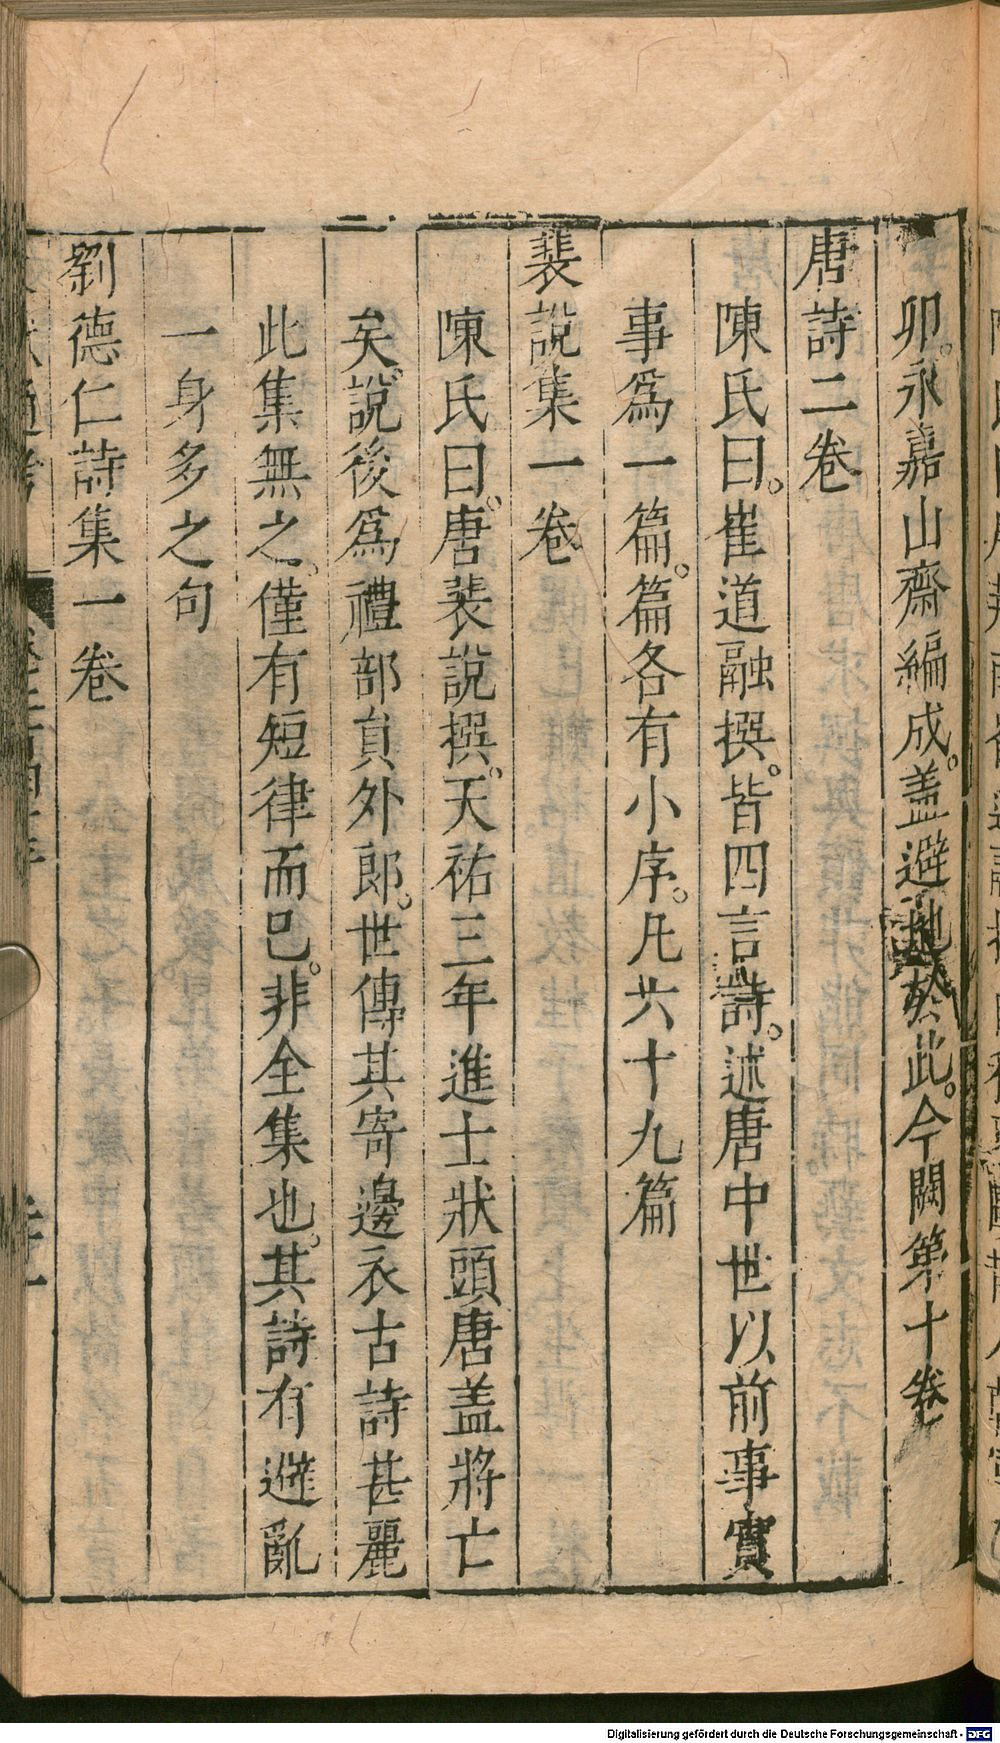 卯。永嘉山齋編成。盖避地於此。今闕第十卷
唐詩二卷
陳氏曰。崔道融撰。皆四言詩。述唐中世以前事實
事爲一篇。篇各有小序。凡六十九篇
裴說集一卷
陳氏曰。唐裴說撰。天祐三年進士狀頭唐盖將亡
矣。說後爲禮部貟外郎。世傳其寄邊衣古詩甚麗
此集無之。僅有短律而已。非全集也。其詩有避亂
一身多之句
劉德仁詩集一卷
Digitalisierung gefördert durch die Deutsche Forschungsgemeinschaft - DFG